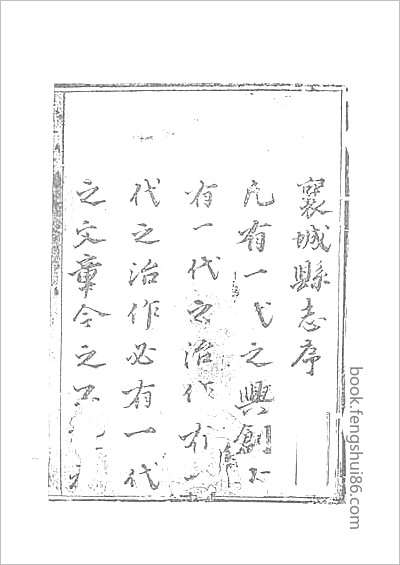 襄城縣志序
凡有一代之興創
有一代之治作有一
代之治作必有一代
之文章今之
book.fengshui86.com